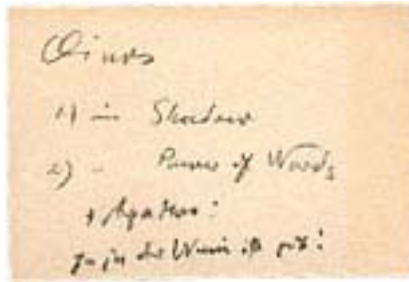 Oinos
1) in Shadow
2) " Power of Words
+ Agathos!
Ja ja der Wein ist gut!